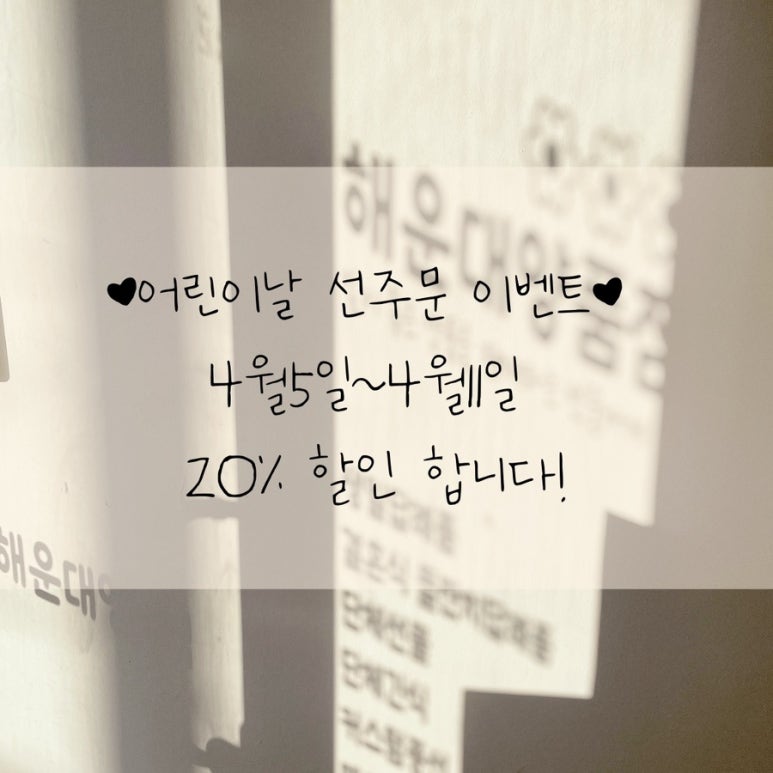 해운대
♥어린이날 선주문 이벤트♥
4월5일~4월11일
20% 할인 합니다!
해운대
결혼식 돌잔치답례품
단체선물
단체간식